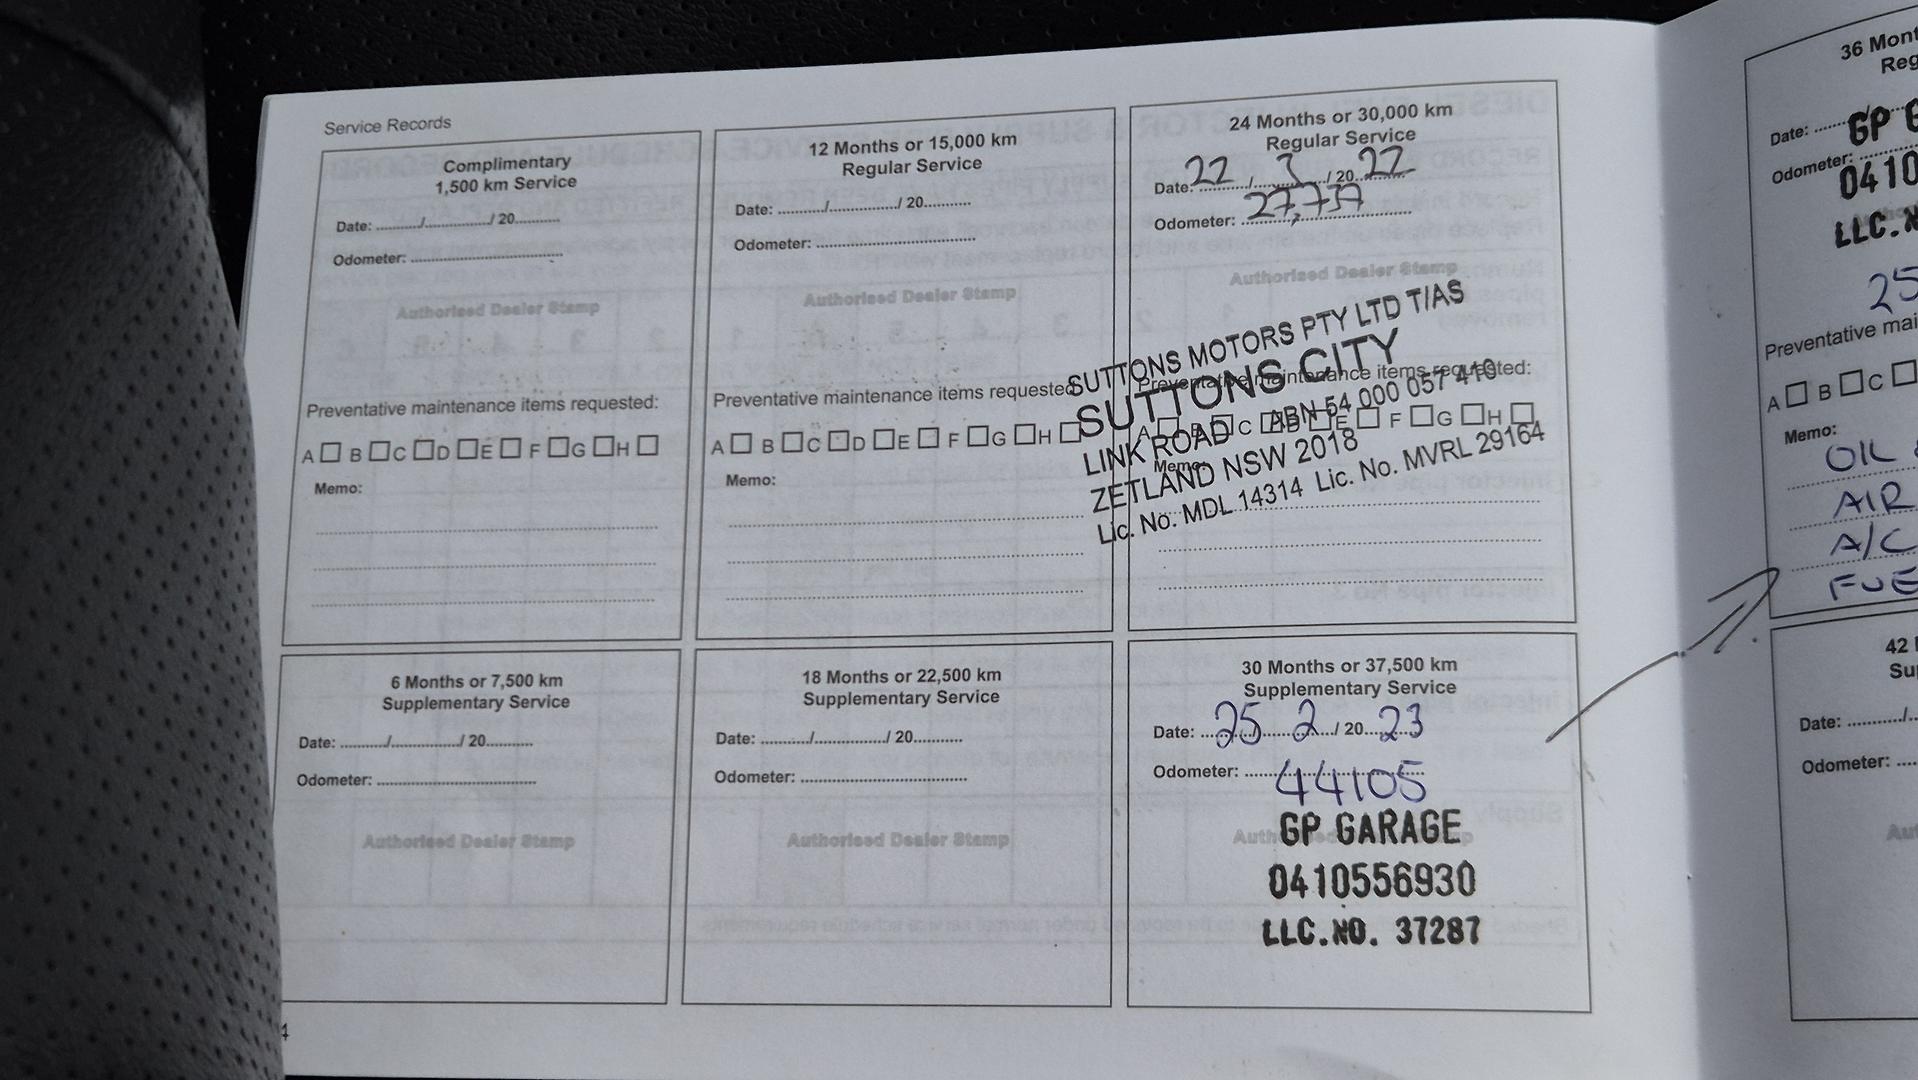 Service Records
Complimentary
1,500 km Service
Date: ........../................/ 20............
Odometer: ..........................................
Authorised Dealer Stamp
Preventative maintenance items requested:
A □ B □ C □ D □ E □ F □ G □ H □
Memo:
12 Months or 15,000 km
Regular Service
Date: ........../................/ 20............
Odometer: ..........................................
Authorised Dealer Stamp
Preventative maintenance items requested
A □ B □ C □ D □ E □ F □ G □ H □
Memo:
24 Months or 30,000 km
Regular Service
Date: 22 / 3 / 20 22
Odometer: 27,737
Authorised Dealer Stamp
SUTTONS MOTORS PTY LTD T/AS
SUTTONS CITY
ABN 54 000 057 410
LINK ROAD
ZETLAND NSW 2018
Lic. No. MDL 14314 Lic. No. MVRL 29164
Preventative maintenance items requested:
A □ B □ C □ D □ E □ F □ G □ H □
Memo:
6 Months or 7,500 km
Supplementary Service
Date: ........../................/ 20............
Odometer: ..........................................
Authorised Dealer Stamp
18 Months or 22,500 km
Supplementary Service
Date: ........../................/ 20............
Odometer: ..........................................
Authorised Dealer Stamp
30 Months or 37,500 km
Supplementary Service
Date: 25 2 / 20 23
Odometer: 44105
GP GARAGE
0410556930
LLC.NO. 37287
4
36 Mont
Reg
Date: GP G
Odometer:
0410
LLC.N
25
Preventative mai
A □ B □ C □
Memo:
OIL &
AIR
A/C
FUE
42
Su
Date: ........../
Odometer: ....
Au